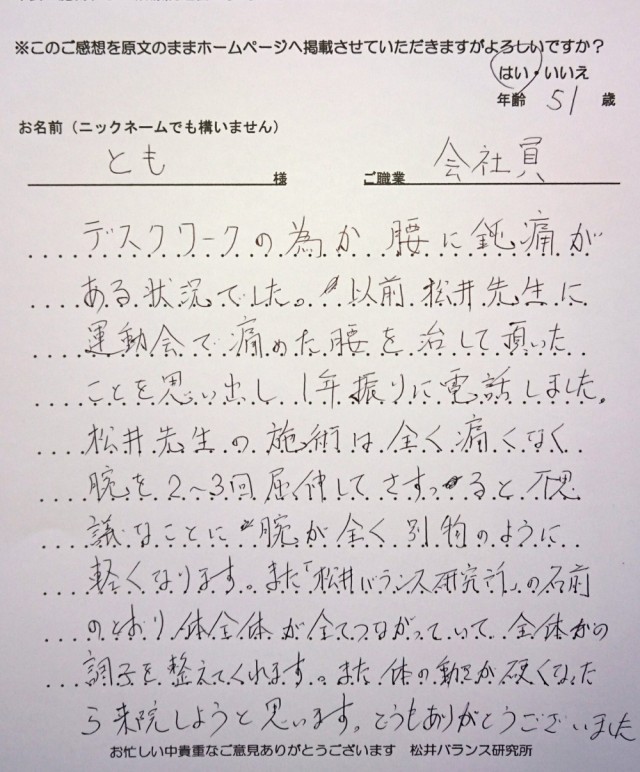 ※このご感想を原文のままホームページへ掲載させていただきますがよろしいですか？
はい・いいえ
年齢 51 歳
お名前（ニックネームでも構いません）
とも 様 ご職業 会社員
デスクワークの為か腰に鈍痛が
ある状況でした。以前松井先生に
運動会で痛めた腰を治して頂いた
ことを思い出し1年振りに電話しました。
松井先生の施術は全く痛くなく
腕を2～3回屈伸してさすっると不思
議なことに腕が全く別物のように
軽くなります。また「松井バランス研究所」の名前
のとおり体全体が全てつながっていて、全体かの
調子を整えてくれます。また体の動きが硬くなった
ら来院しようと思います。どうもありがとうございました
お忙しい中貴重なご意見ありがとうございます 松井バランス研究所